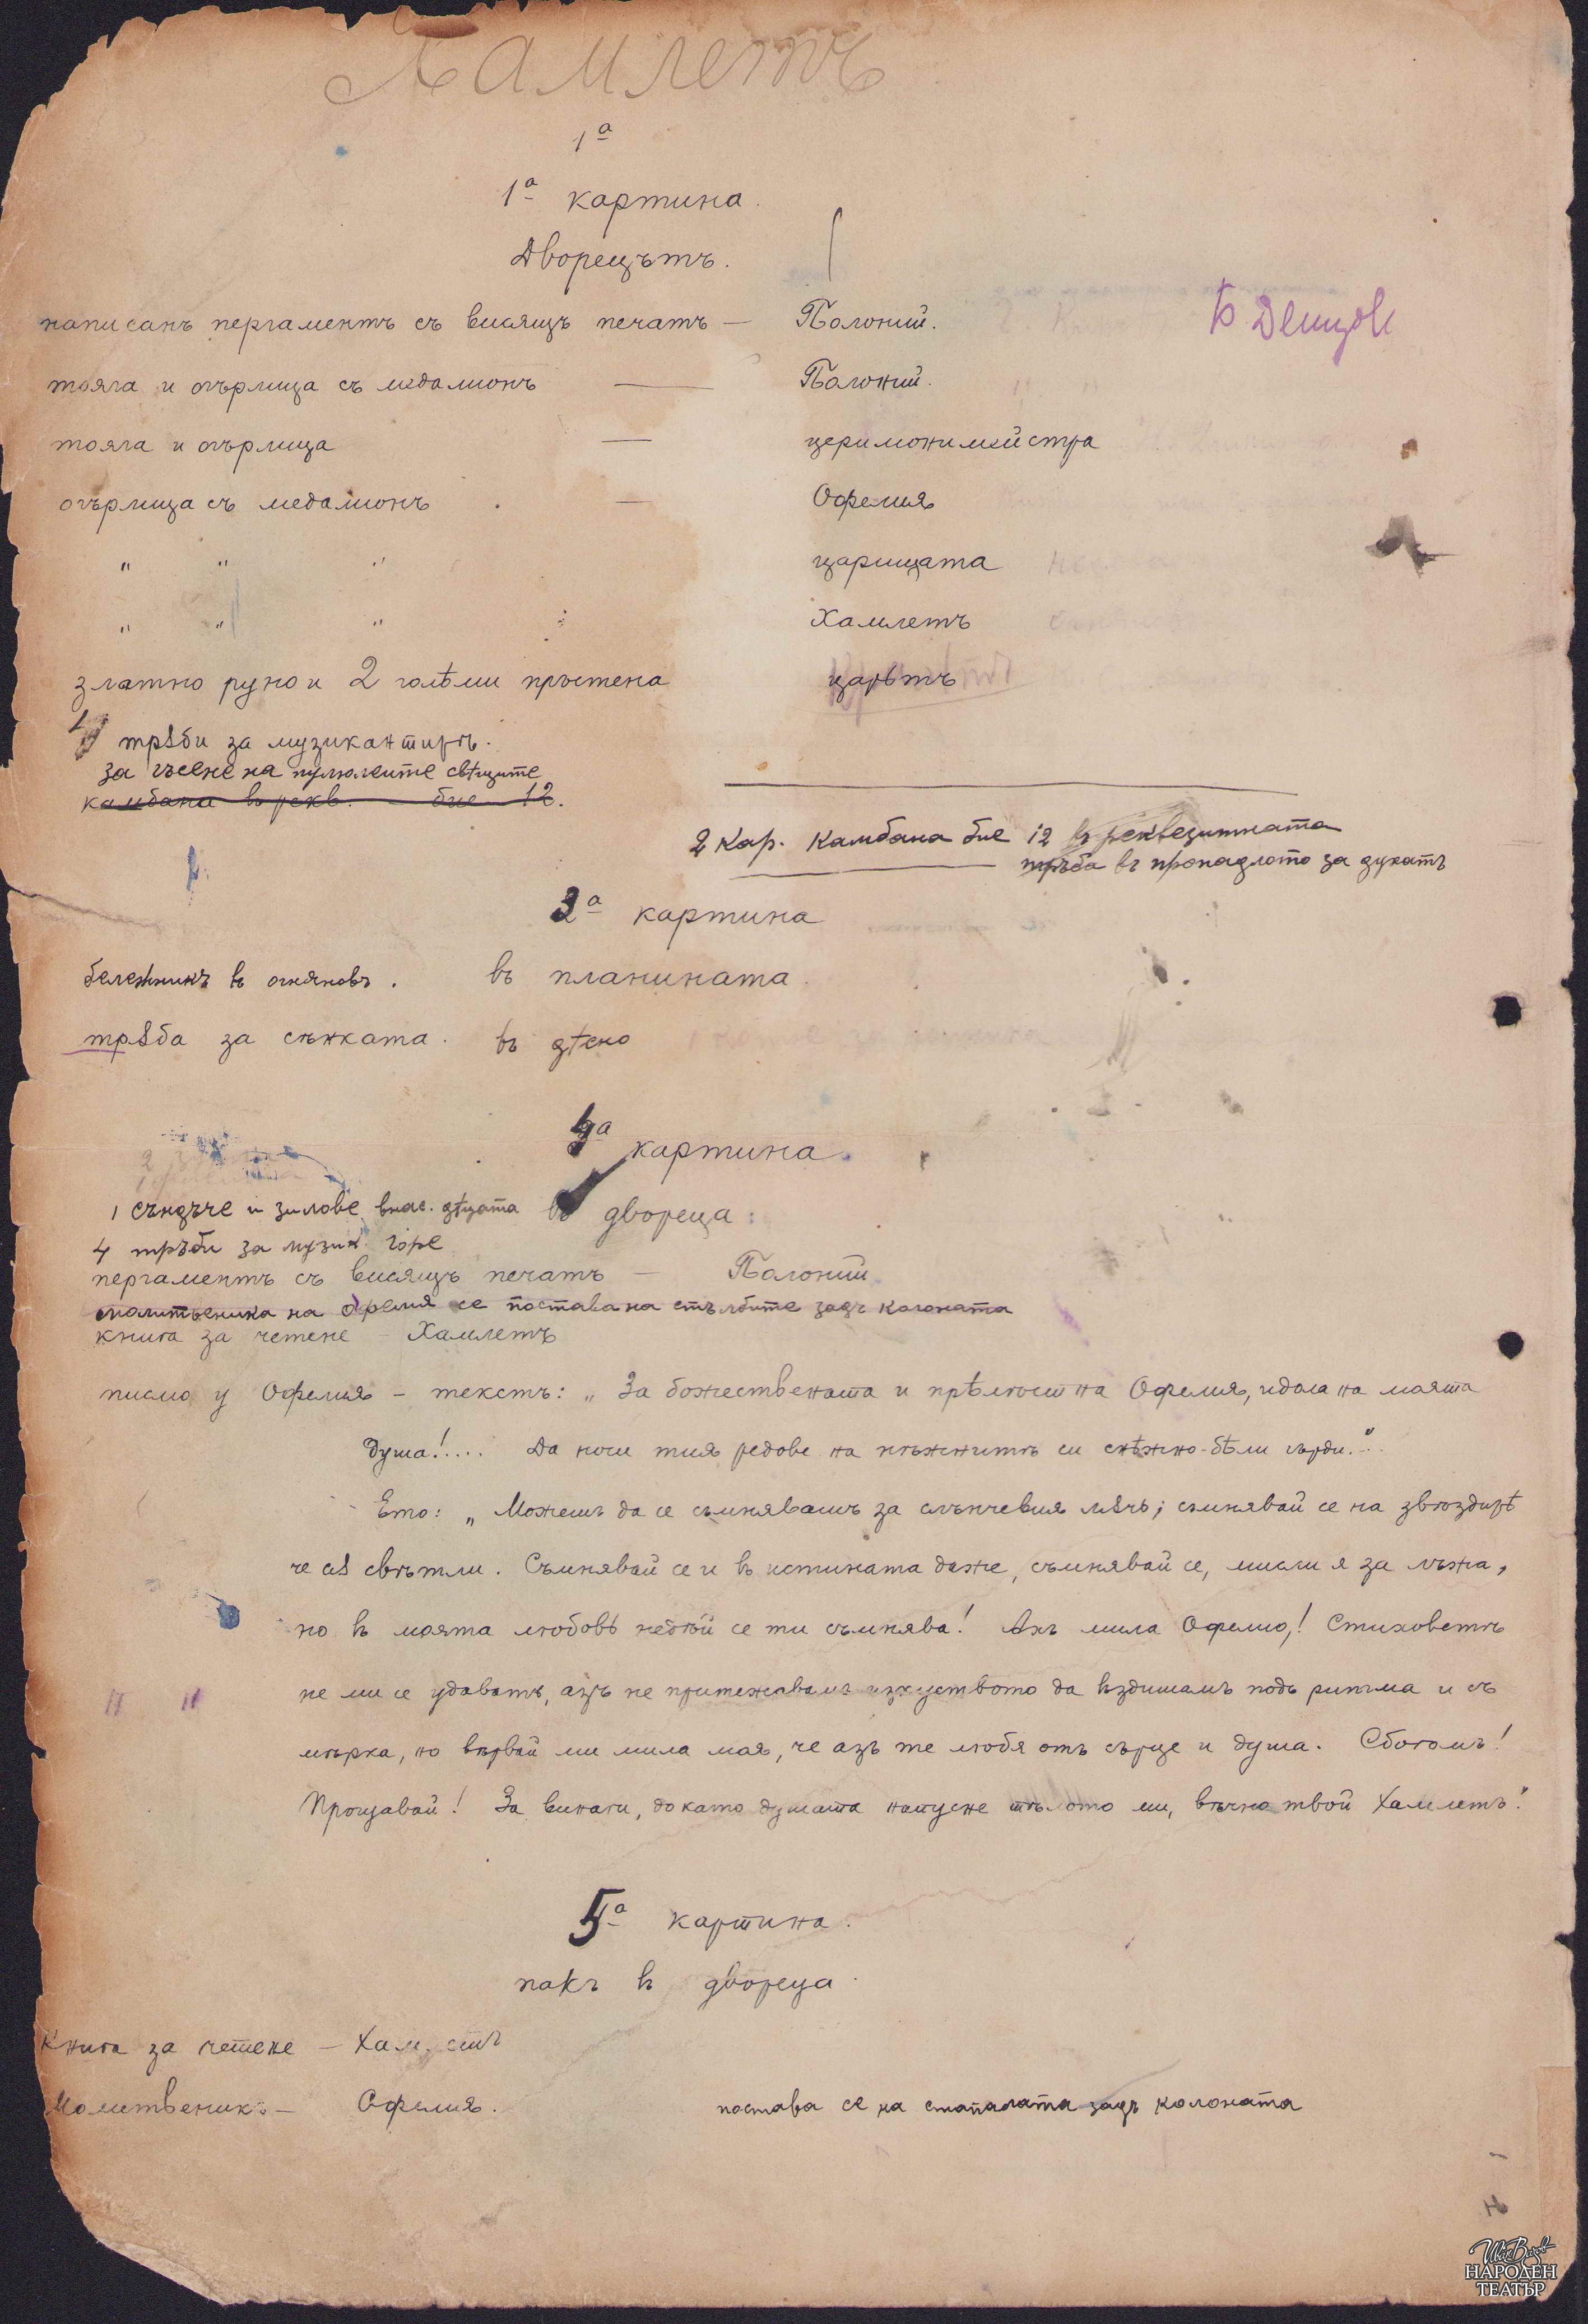 Хамлетъ
1а
1а картина.
Дворецътъ.
написанъ пергаментъ съ висящъ печатъ — Полоний.
Б Денизов
тояга и огърлица съ медалионъ — Полоний.
тояга и огърлица — церимонимейстра
огърлица съ медалионъ — Офелия
" " " царицата
" " " Хамлетъ
златно руно и 2 голѣми пръстена царьтъ
4 трѫби за музикантирѣ.
за гъсене на свѣщите
камбана въ рекв. бие 12.
2 Кар. Камбана бие 12 въ реквезитната
тръба въ пропадлото за духатъ
3а картина
бележникъ въ огняновъ. въ планината.
трѫба за сѣнката. въ дѣсно
4а картина.
1 сѫндъче и зилове внас. дѣцата въ двореца.
4 тръби за музик горе
пергаментъ съ висящъ печатъ — Полоний
молитвеника на Офелия се постава на стълбите задъ колоната
книга за четене – Хамлетъ
писмо у Офелия – текстъ: „За божествената и прѣлѣстна Офелия, идола на моята
душа!... Да носи тия редове на нѣжнитѣ си снѣжно-бѣли гърди."..
Ето: „Можешъ да се съмнявашъ за слънчевия лѫчъ; съмнявай се на звѣздирѣ
че сѫ свѣтли. Съмнявай се и въ истината даже, съмнявай се, мисли я за лъжа,
но въ моята любовь недѣй се ти съмнява! Ахъ мила Офелио,! Стиховетѣ
не ми се удаватъ, азъ не притежавамъ изкуството да въздишамъ подъ ритъма и съ
мѣрка, но вѣрвай ми мила моя, че азъ те любя отъ сърце и душа. Сбогомъ!
Прощавай! За винаги, докато душата напусне тѣлото ми, вѣчно твой Хамлетъ."
5а картина.
пакъ въ двореца.
Книга за четене – Хамлетъ
Молитвеникъ – Офелия. постава се на стъпалата задъ колоната
Иван Вазов
НАРОДЕН
ТЕАТЪР